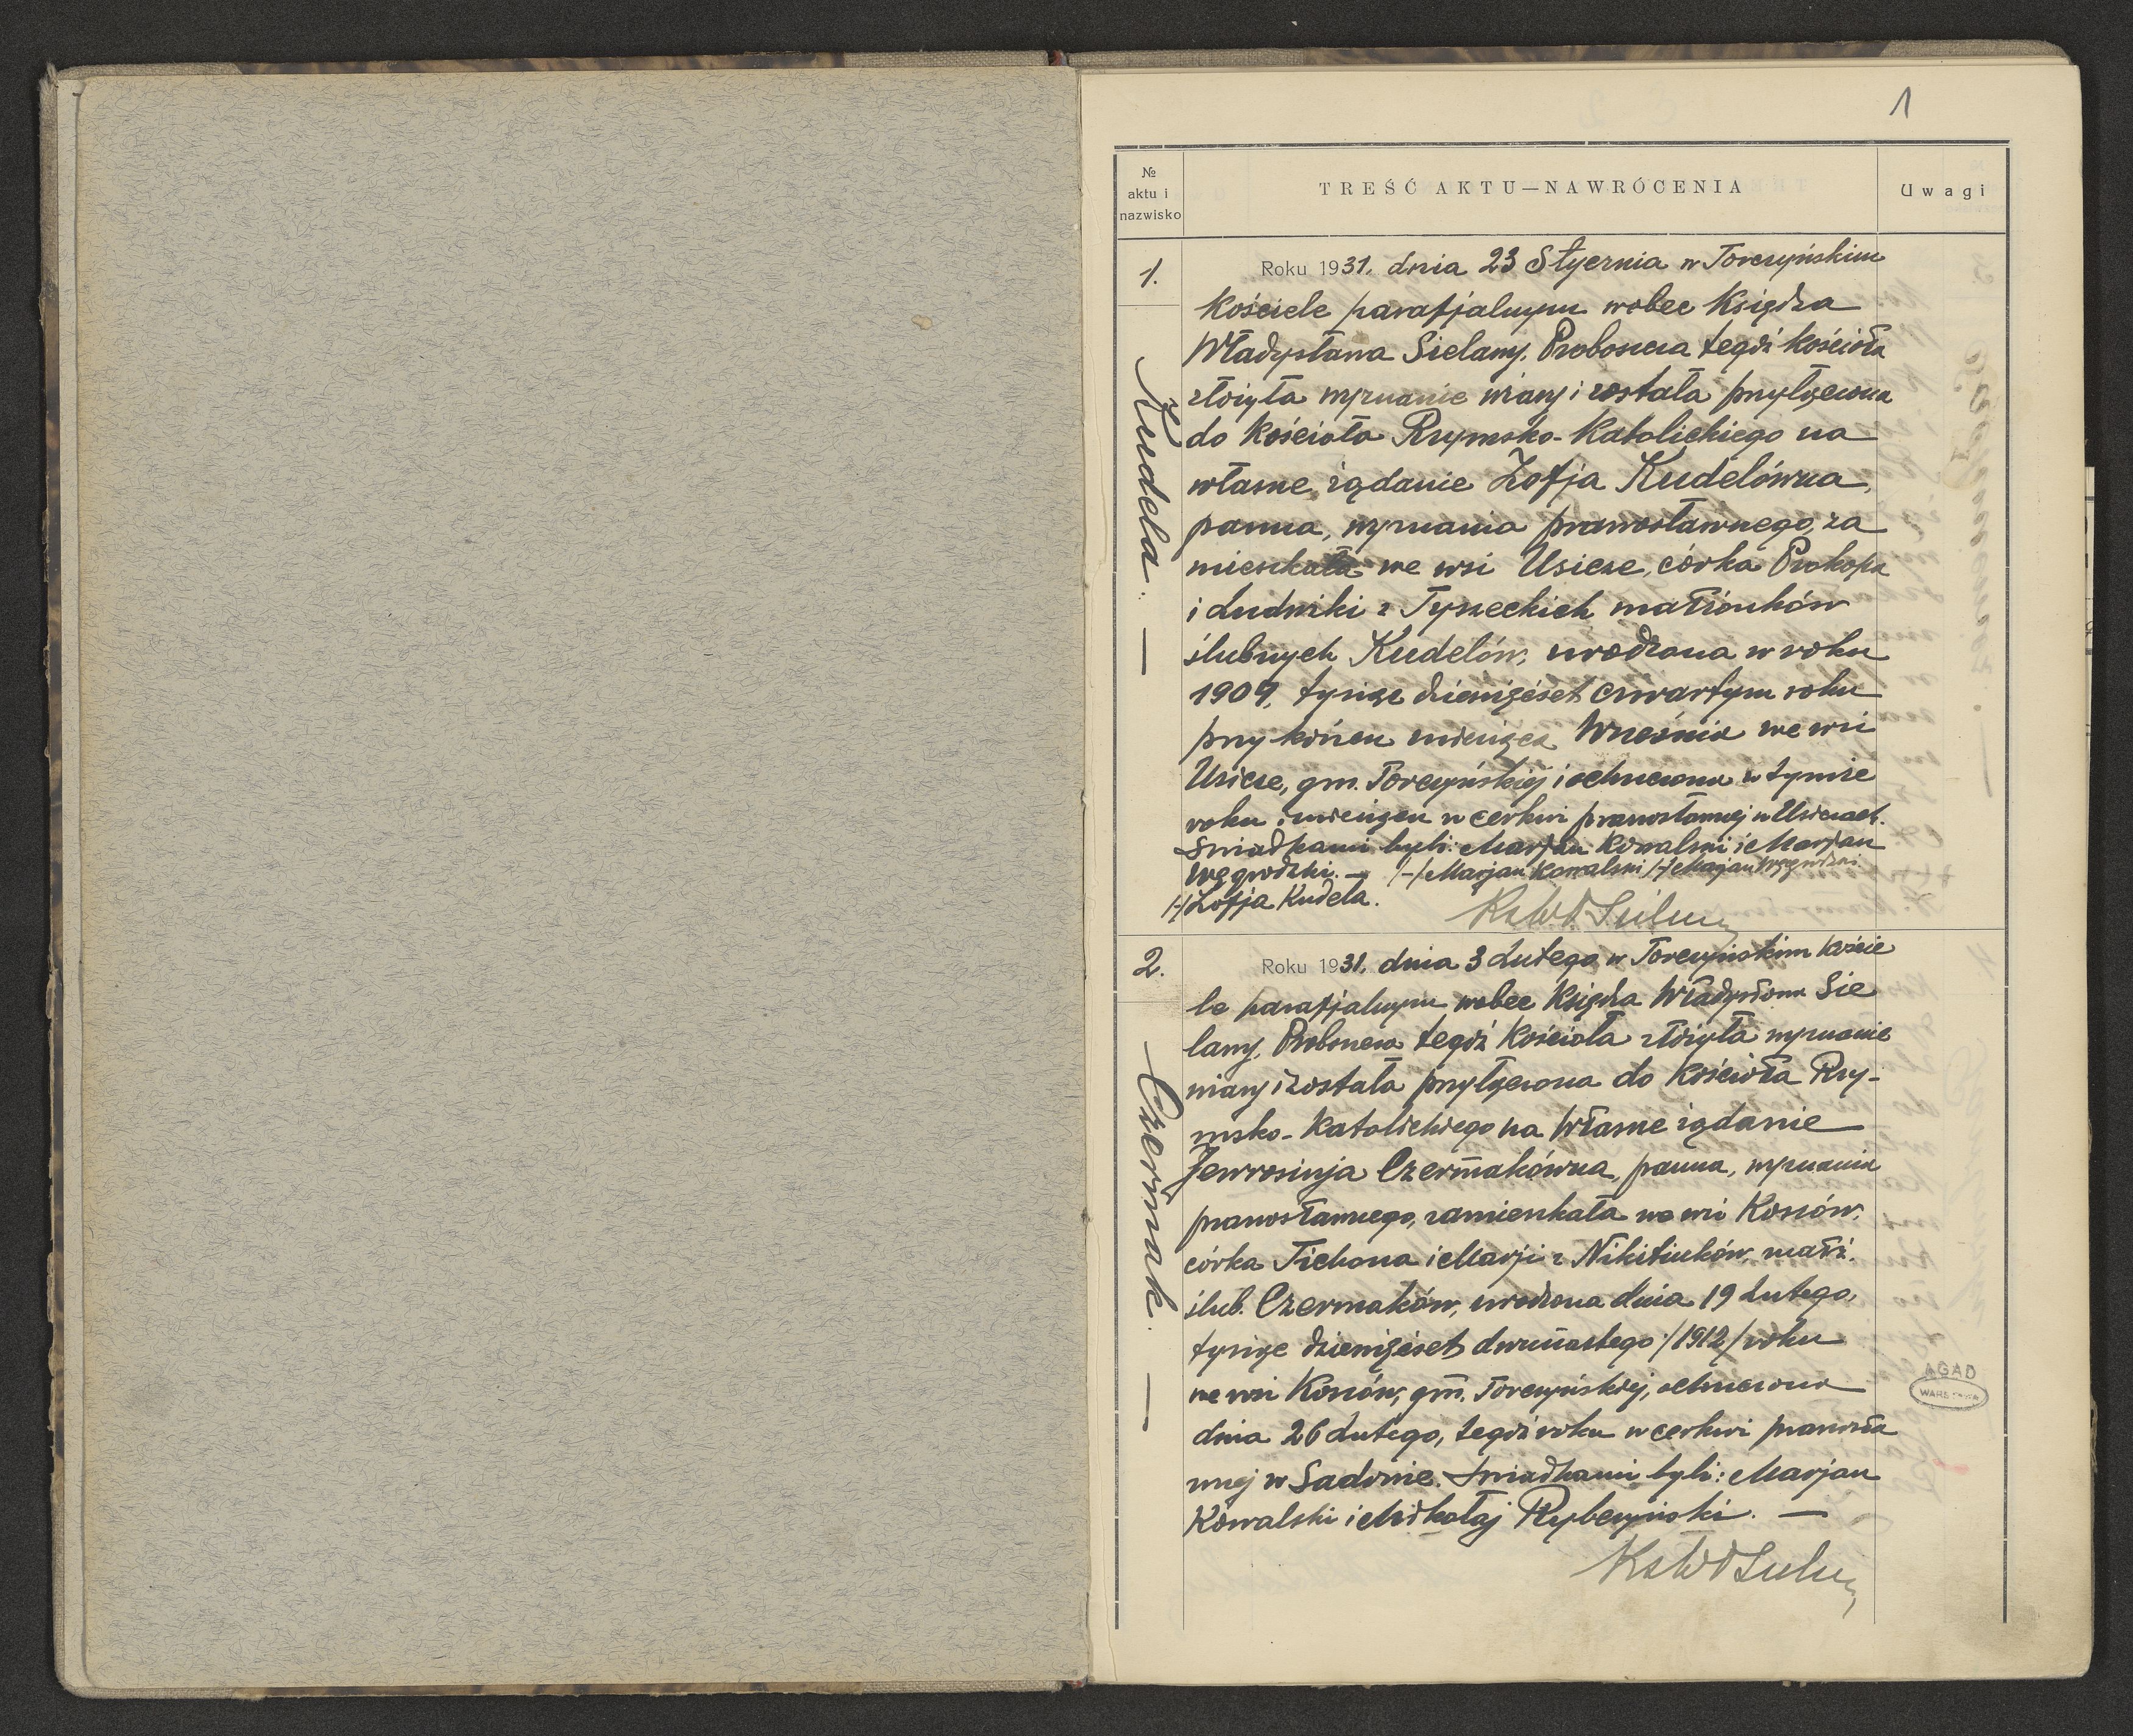 1
№ aktu i nazwisko
TREŚĆ AKTU—NAWRÓCENIA
Uwagi
1.
Kudela. —
Roku 1931. dnia 23 Stycznia w Torczyńskim
Kościele parafjalnym wobec Księdza
Władysława Sielany, Proboszcza tegoż Kościoła
złożyła wyznanie wiary i została przyłączona
do Kościoła Rzymsko-Katolickiego na
własne żądanie Zofja Kudelówna,
panna, wyznania prawosławnego, za
mieszkała we wsi Usicze, córka Prokopa
i Ludwiki z Tyszeckich małżonków
ślubnych Kudelów, urodzona w roku
1904, tysiąc dziewięćset czwartym roku
przy końcu miesiąca Września we wsi
Usicze, gm. Torczyńskiej i ochrzczona w tymże
roku i miesiącu w cerkwi prawosławnej w Usiczach.
Świadkami byli: Marjan Kowalski i Marjan
Węgrodzki. — /-/ Marjan Kowalski /-/ Marjan Węgrodzki
/-/ Zofja Kudela.
Ks Wł Sielany
2.
Czermak. —
Roku 1931. dnia 3 Lutego w Torczyńskim Koście
le parafjalnym wobec Księdza Władysława Sie
lany, Proboszcza tegoż Kościoła złożyła wyznanie
wiary i została przyłączona do Kościoła Rzy-
msko-Katolickiego na własne żądanie
Jewrosinja Czermakówna, panna, wyznania
prawosławnego, zamieszkała we wsi Kossów,
córka Tichona i Marji z Nikitiuków, małż.
ślub. Czermaków, urodzona dnia 19 Lutego,
tysiąc dziewięćset dwunastego /1912/ roku
we wsi Kossów, gm. Torczyńskiej, ochrzczona
dnia 26 Lutego, tegoż roku w cerkwi prawosła
wnej w Sadowie. Świadkami byli: Marjan
Kowalski i Mikołaj Rybczyński. —
Ks Wł Sielany
AGAD
WARSZAWA